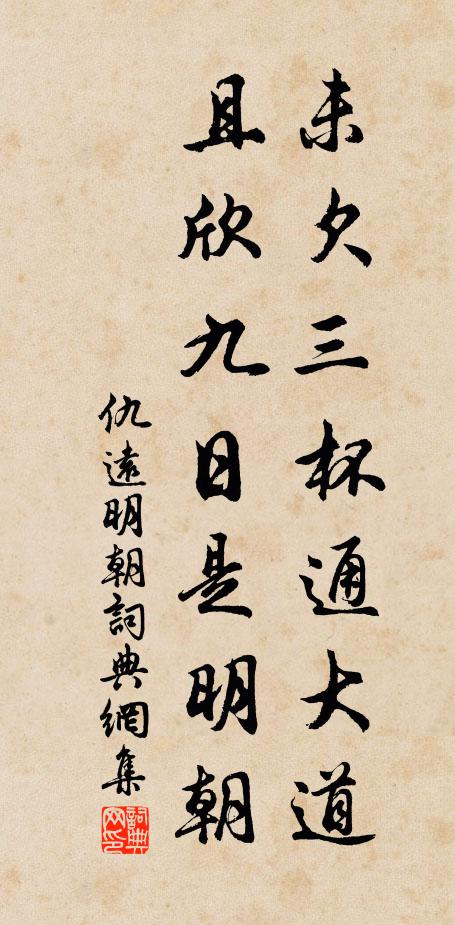 未欠三杯通大道
且欣九日是明朝
仇遠明朝詞典網集
詞典网印